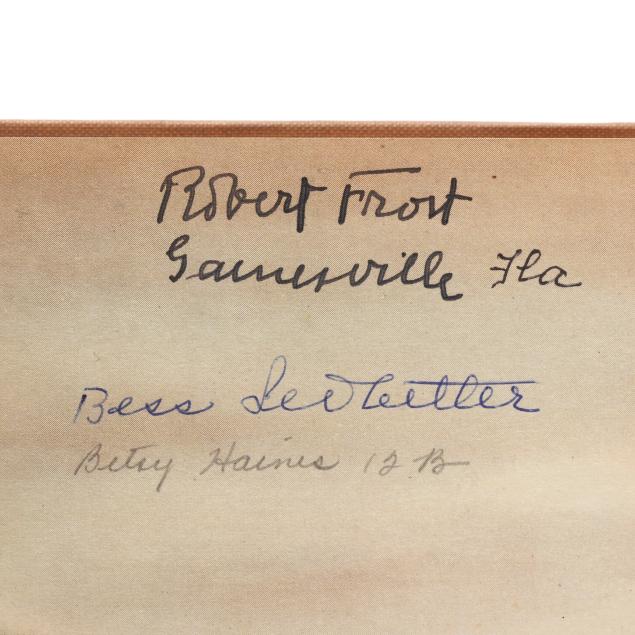 Robert Frost
Gainesville Fla
Bess Ledbetter
Betsy Haines 12 B